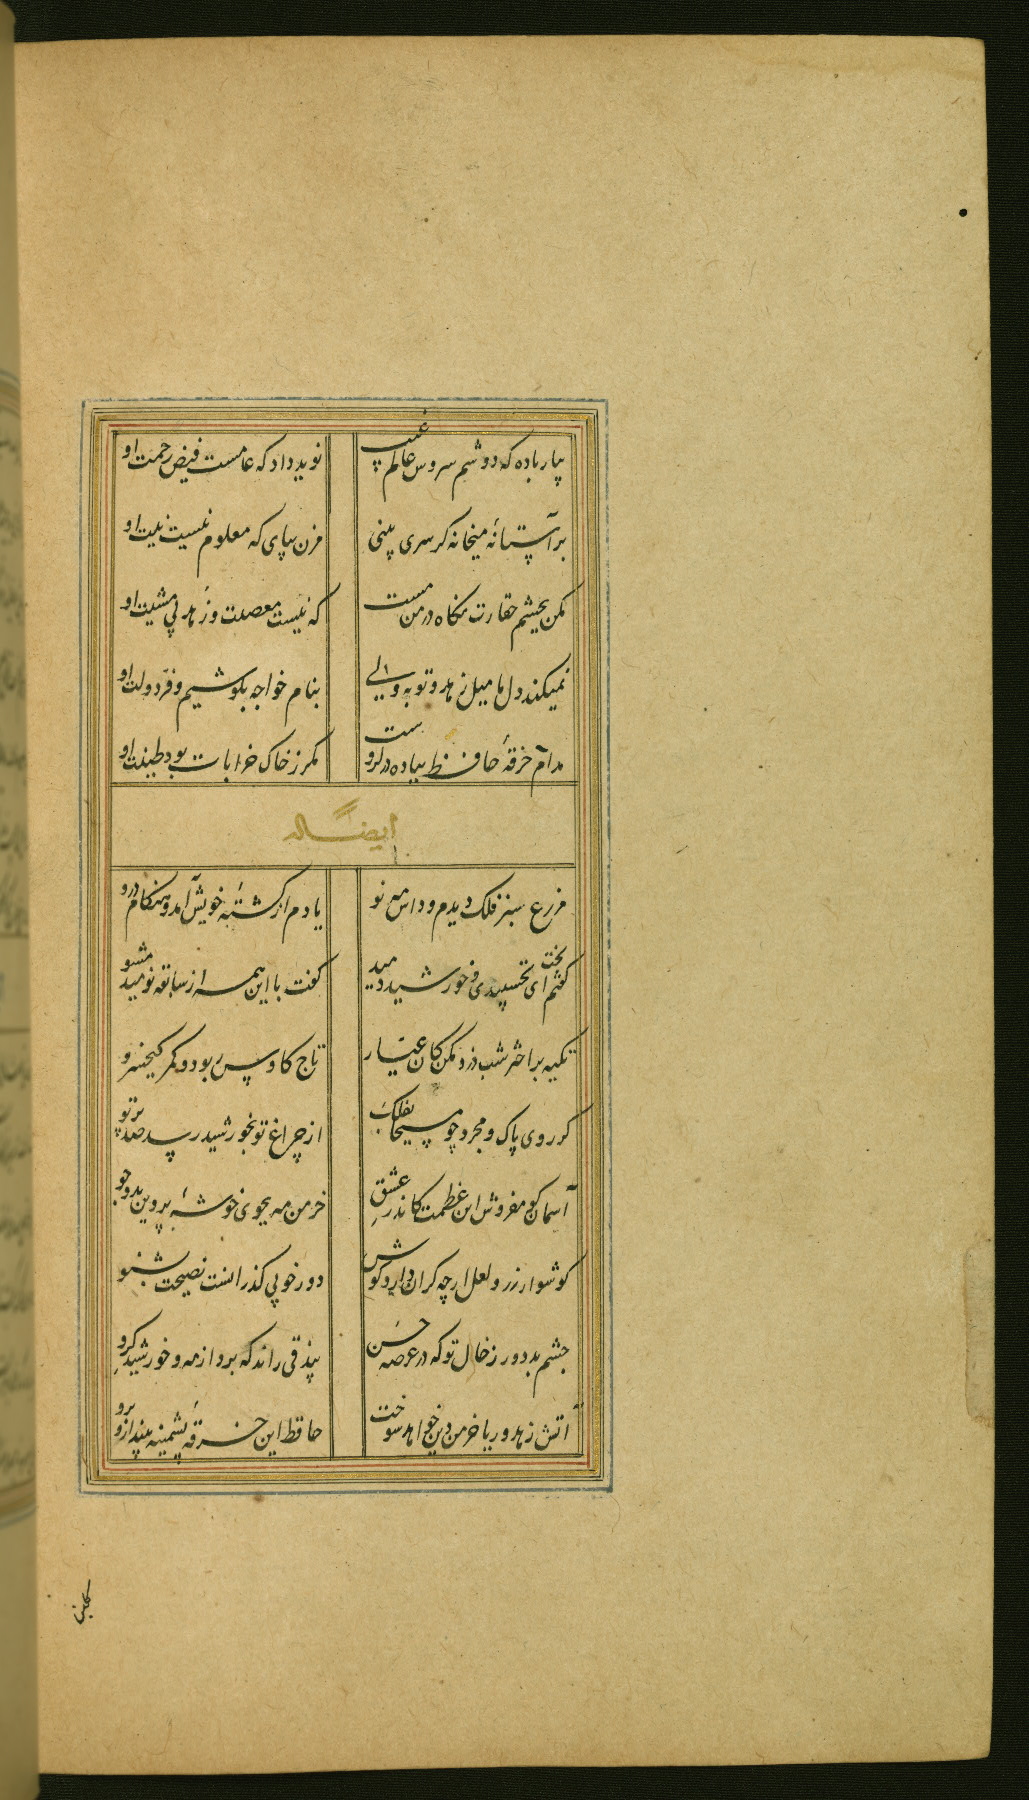 بیار باده که دوشم سروش عالم غیب
نوید داد که عامست فیض رحمت او
بر آستانهٔ میخانه کر سری بینی
مزن بپای که معلوم نیست نیت او
مکن بچشم حقارت نکاه در من مست
که نیست معصیت و زهد بی مشیت او
نمیکند دل ما میل زهد و توبه ولی
بنام خواجه بکوشیم و فر دولت او
مدام خرقهٔ حافظ بباده در کروست
مکر ز خاک خرابات بود طینت او
ایضاً له
مزرع سبز فلک دیدم و داس مه نو
یادم از کشتهٔ خویش آمد و هنکام درو
کفتم ای بخت بخسپیدی و خورشید دمید
کفت با این همه از سابقه نومید مشو
تکیه بر اختر شب دزد مکن کان عیار
تاج کاوس ربود و کمر کیخسرو
کر روی پاک و مجرد چو مسیحا بفلک
از چراغ تو بخورشید رسد صد پرتو
آسمان کو مفروش این عظمت کاندر عشق
خرمن مه بجوی خوشهٔ پروین بدو جو
کوشوار زر و لعل ارچه کران دارد کوش
دور خوبی کذرانست نصیحت بشنو
چشم بد دور ز خال تو که در عرصه حسن
بیذقی راند که برد از مه و خورشید کرو
آتش زهد و ریا خرمن دین خواهد سوخت
حافظ این خرقهٔ پشمینه بینداز و برو